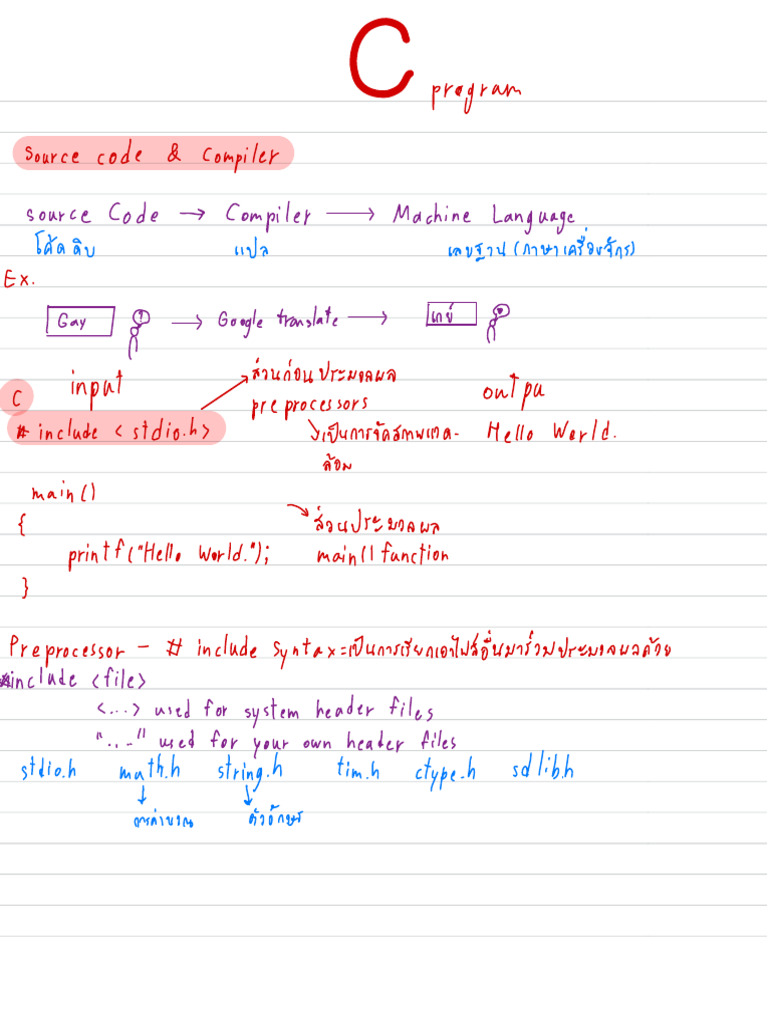 C program
Source code & Compiler
source Code → Compiler → Machine Language
โค้ดดิบ แปล เลขฐาน (ภาษาเครื่องจักร)
Ex.
Gay → Google translate → เกย์
input ส่วนก่อนประมวลผล outpu
C preprocessors
# include < stdio.h> เป็นการจัดสภาพแวด- Hello World.
ล้อม
main()
{ ส่วนประมวลผล
printf("Hello World."); main() function
}
Preprocessor - # include Syntax = เป็นการเรียกเอาไฟล์อื่นมาร่วมประมวลผลด้วย
#include <file>
<...> used for system header files
"..." used for your own header files
stdio.h math.h string.h tim.h ctype.h sdlib.h
การคำนวณ ตัวอักษร